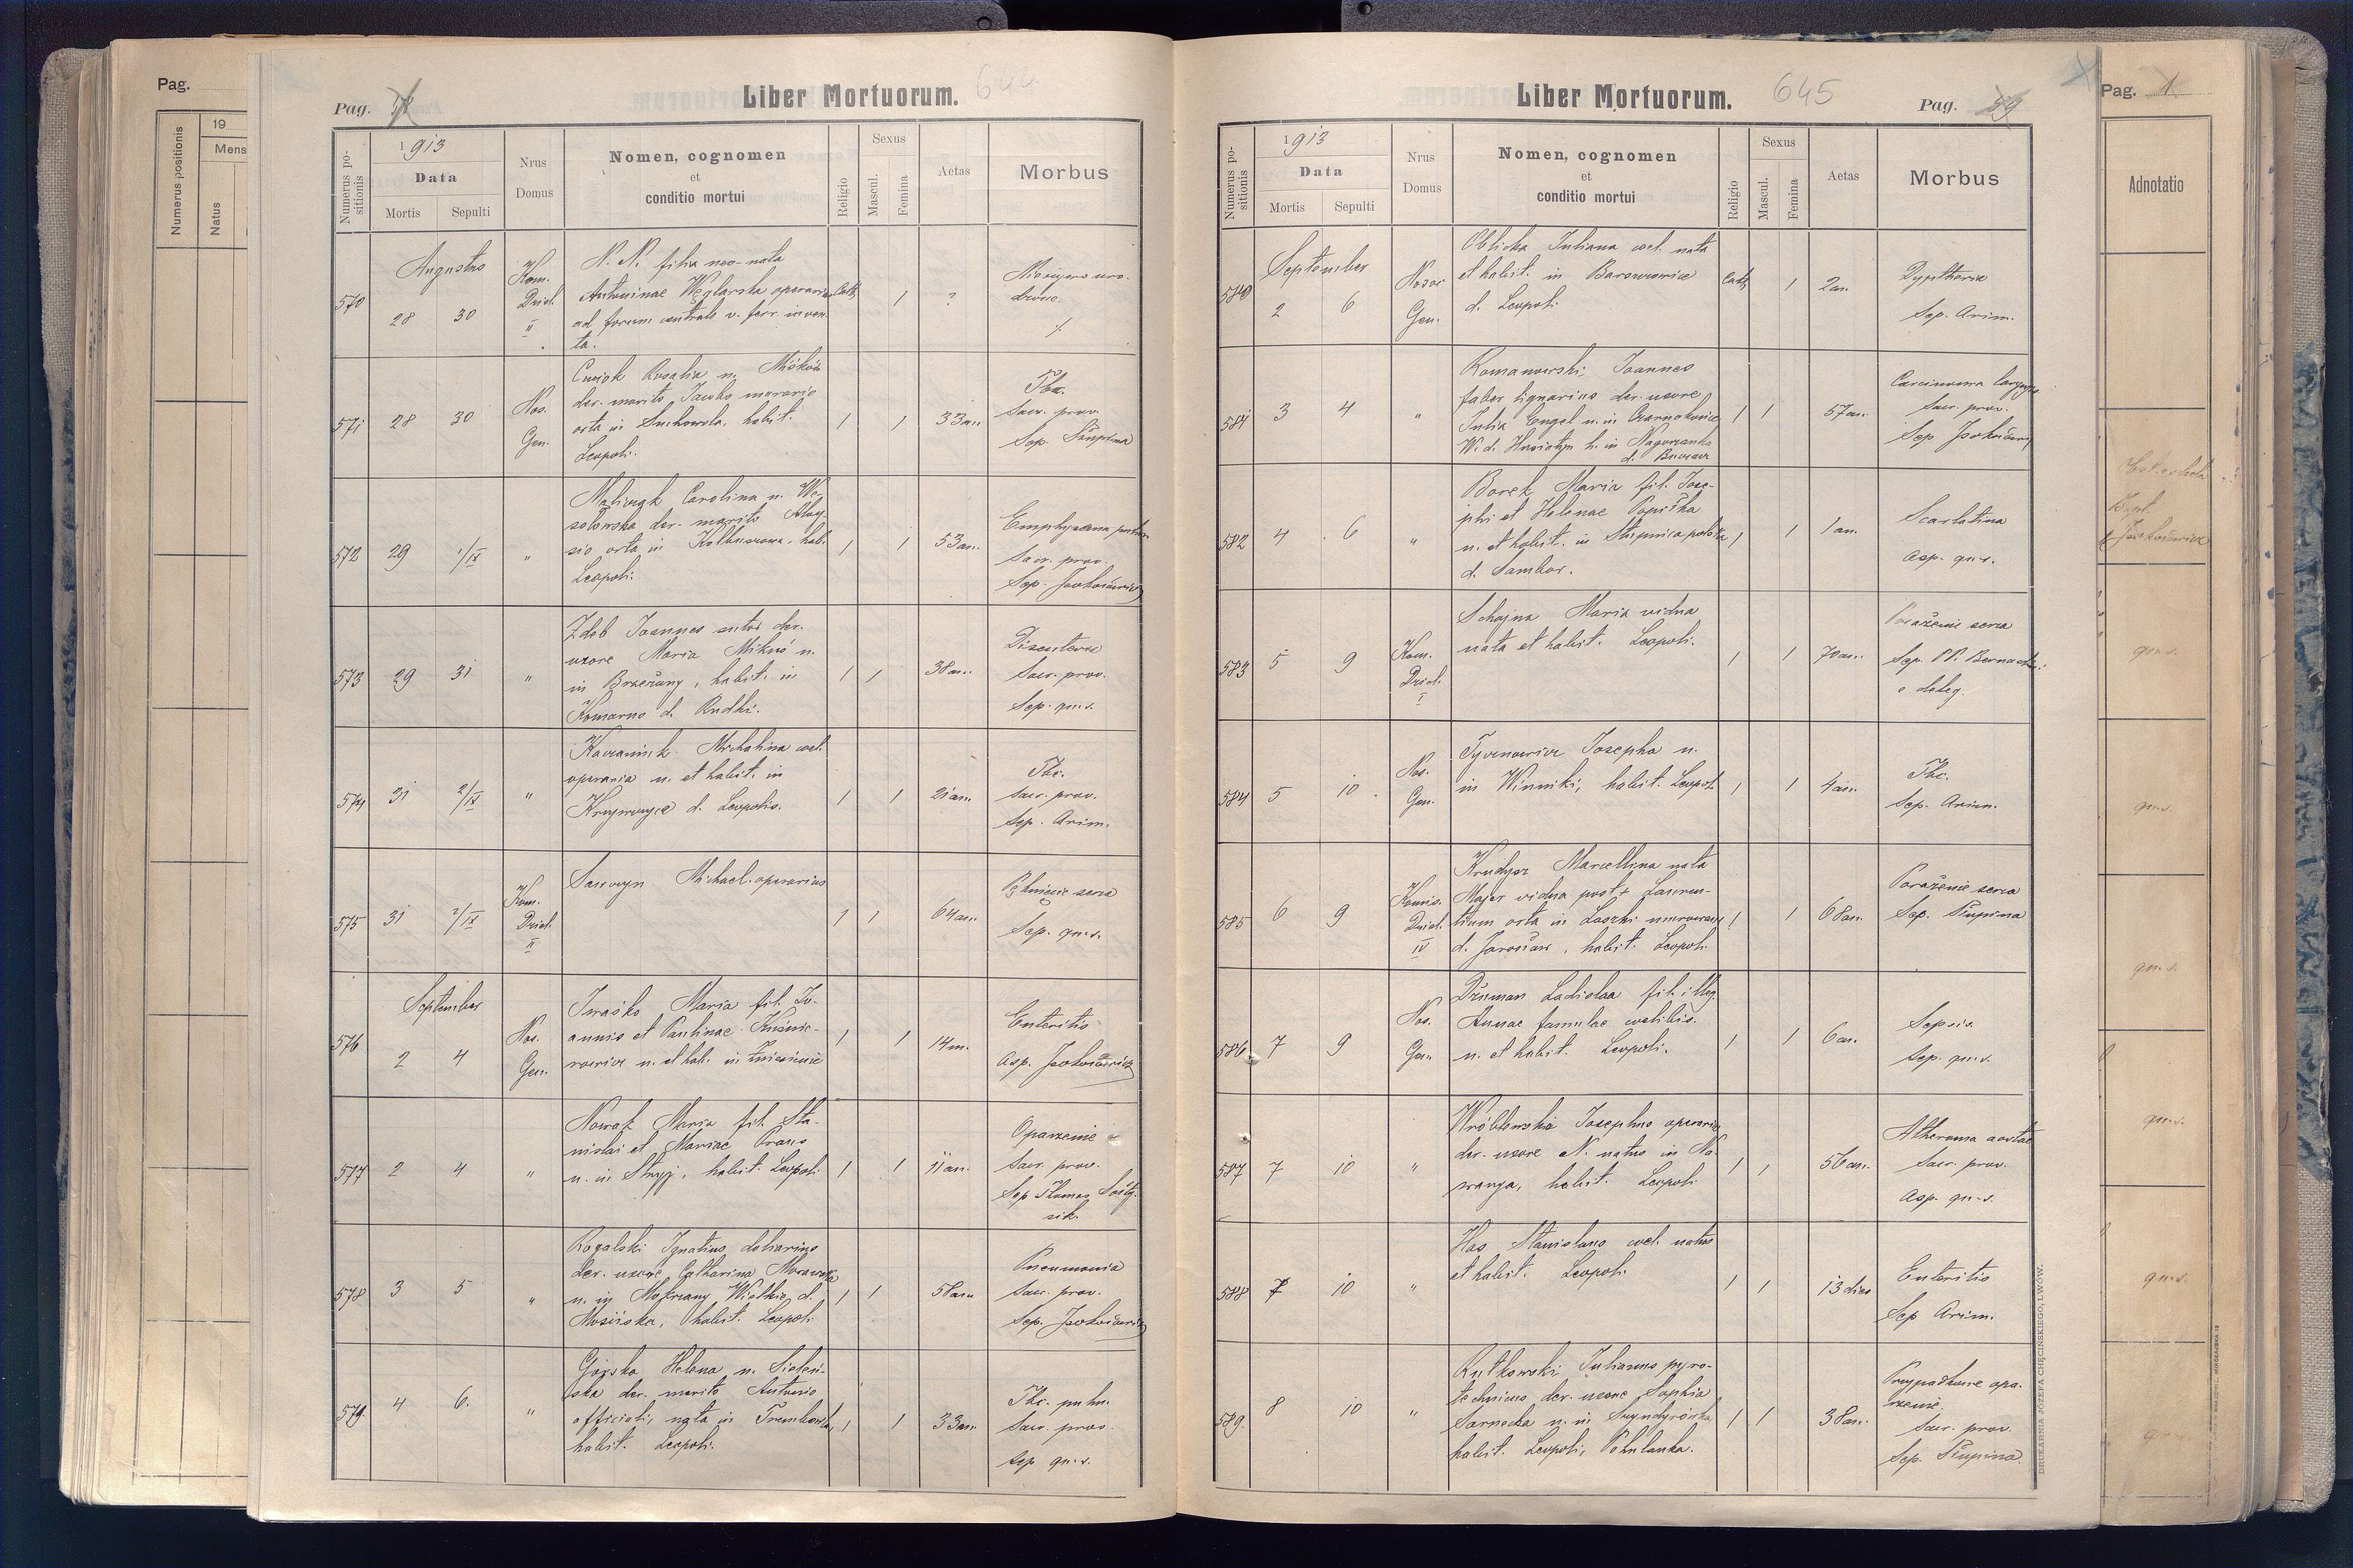 Pag.
Numerus positionis
19
Mens
Natus
Pag. 58
Liber Mortuorum.
644
Numerus positionis
1913
Data
Mortis
Sepulti
Nrus Domus
Nomen, cognomen
et
conditio mortui
Religio
Sexus
Mascul.
Femina
Aetas
Morbus
570
Augustus
28 30
Kom.
Dziel.
II
N. N. filia neo-nata
Antoninae Węglarska operariae
ad forum centrale v. ferr. inven
ta.
Cath.
1
?
Nieżywo uro-
dzone.
571
28 30
Nos.
Gen.
Rosalia n.
der. marito Jacobo murario
orta in Suchowola, habit.
Leopoli.
1 1
33 an.
Tbc.
Sacr. prov.
Sep. Słupina
572
29 1/IX
"
Carolina n. We-
sołowska der. marito Aloy-
sio orta in Kolbuszowa, hab.
Leopoli.
1 1
53 an.
Emphysema pulm.
Sacr. prov.
Sep.
573
29 31
"
Zdeb Joannes sutor der.
uxore Maria Mikuś n.
in Brzeżany, habit. in
Komarno d. Rudki.
1 1
38 an.
Disenteria
Sacr. prov.
Sep. qu. s.
574
31 2/IX
"
Michalina coel.
operaria n. et habit. in
Krzywczyce d. Leopolis.
1 1
21 an.
Tbc.
Sacr. prov.
Sep. Arim.
575
31 2/IX
Kom.
Dziel.
II
Michael operarius
1 1
64 an.
Pęknięcie serca
Sep. qu. s.
576
September
2 4
Nos.
Gen.
Iwaśko Maria fil. Jo-
annis et Paulinae Kuśnie-
rowicz n. et hab. in Zniesienie
1 1
14 m.
Enteritis
Asp.
577
2 4
"
Nowak Maria fil. Sta-
nislai et Mariae
n. in Stryj, habit. Leopoli
1 1
11 an.
Oparzenie
Sacr. prov.
Sep. Thomas
578
3 5
"
Rogalski Ignatius doliarius
der. uxore Catharina Morawska
n. in Mokrzany Wielkie d.
Mościska, habit. Leopoli
1 1
58 an.
Pneumonia
Sacr. prov.
Sep.
579.
4 6.
"
Górska Helena n. Sieleń-
ska der. marito Antonio
officiali, nata in Trembowla,
habit. Leopoli.
1 1
33 an.
Tbc. pulm.
Sacr. prov.
Asp. qu. s.
Liber Mortuorum.
645
Pag. 59
Numerus positionis
1913
Data
Mortis
Sepulti
Nrus Domus
Nomen, cognomen
et
conditio mortui
Religio
Sexus
Mascul.
Femina
Aetas
Morbus
580
September
2 6
Nosoc
Gen.
Oblicka Juliana coel. nata
et habit. in Barszczowice
d. Leopoli.
Cath.
1
2 an.
Dyphtheria
Sep. Arim.
581
3 4
"
Romanowski Joannes
faber lignarius der. uxore
Julia Engel n. in Czarnokońce
W. d. Husiatyn h. in Nagórzanka
d. Buczacz
1 1
57 an.
Carcinoma laryngis
Sacr. prov.
Sep.
582
4 6
"
Borek Maria fil. Jose-
phi et Helenae
n. et habit. in Stupnica polska
d. Sambor.
1 1
1 an.
Scarlatina
Asp. qu. s.
583
5 9
Kom.
Dziel.
I
Schajna Maria vidua
nata et habit. Leopoli.
1 1
70 an.
Porażenie serca
Sep. PP. Bernardini
e deleg.
584
5 10
Nos.
Gen.
Josepha n.
in Winniki, habit. Leopol.
1 1
4 an.
Tbc.
Sep. Arim.
585
6 9
Komis.
Dziel.
IV
Marcellina nata
Majer vidua post + Lauren-
tium orta in Laszki murowane
d. Jarosław, habit. Leopoli
1 1
68 an.
Porażenie serca
Sep. Słupina
586.
7 9
Nos.
Gen.
Ladislaa fil. illeg.
Annae famulae coelibis.
n. et habit. Leopoli.
1 1
6 an.
Sepsis.
Sep. qu. s.
587
7 10
"
Wróblewski Josephus operarius
der. uxore N. natus in Na-
warya, habit. Leopoli
1 1
56 an.
Atheroma aortae
Sacr. prov.
Asp. qu. s.
588
7 10
"
Has Stanislaus coel. natus
et habit. Leopoli
1 1
13 dies
Enteritis
Sep Arim.
589.
8 10
"
Rutkowski Julianus pyro-
technicus der. uxore Sophia
Sarnecka n. in
habit. Leopoli, Pohulanka.
1 1
38 an.
Przypadkowe opa-
rzenie.
Sacr. prov.
Sep. Słupina.
DRUKARNIA JÓZEFA CHĘCIŃSKIEGO, LWÓW.
Pag. 1
Adnotatio
qu. s.
qu. s.
qu. s.
qu. s.
qu. s.
qu. s.